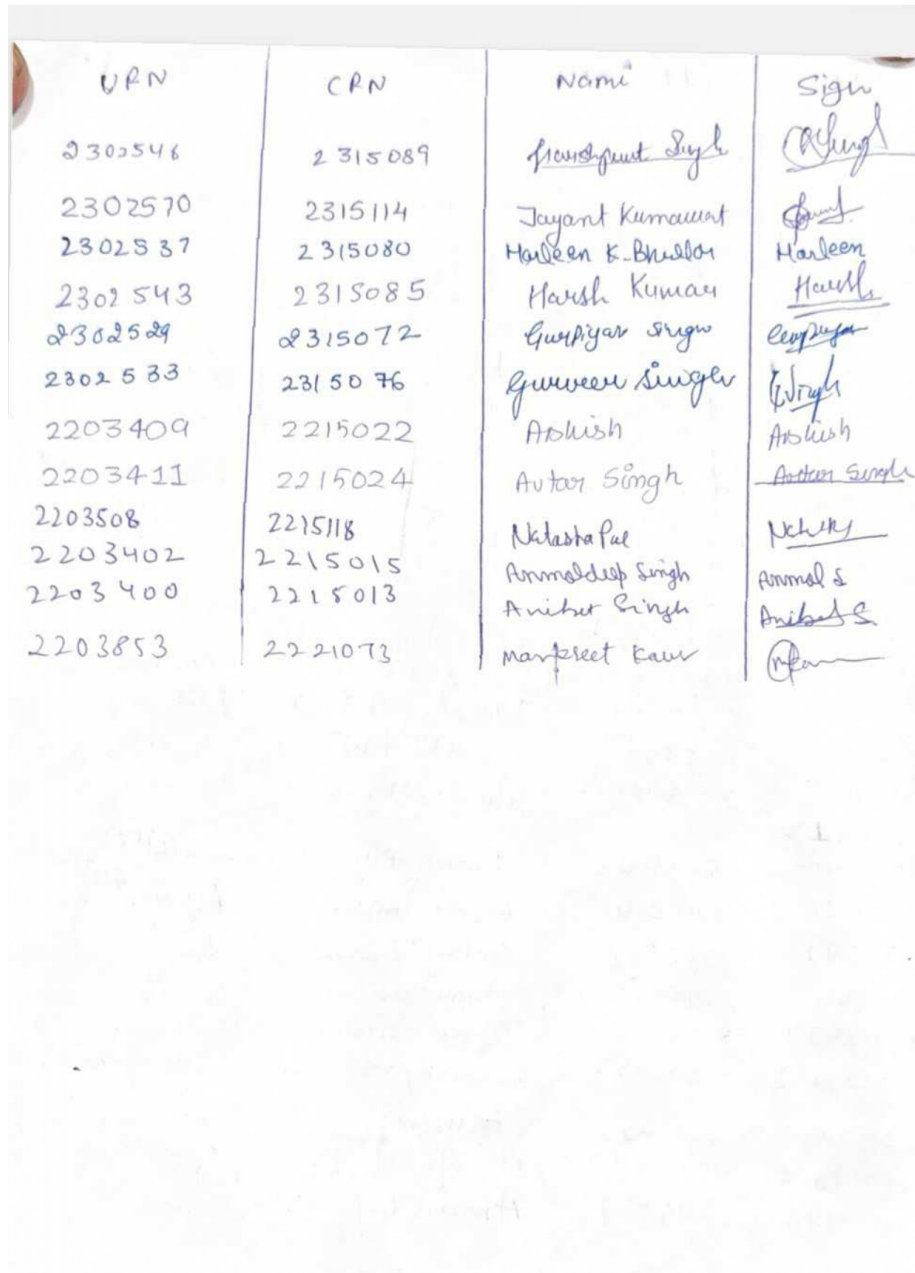 URN CRN Name Sign
2302546 2315089 Harshpreet Singh
2302570 2315114 Jayant Kumawat
2302537 2315080 Harleen K. Bhullar Harleen
2302543 2315085 Harsh Kumar Harsh
2302529 2315072 Gurpiyar Singh Gurpiyar
2302533 2315076 Gurveer Singh GSingh
2203409 2215022 Ashish Ashish
2203411 2215024 Avtar Singh Avtar Singh
2203508 2215118 Natasha Pal
2203402 2215015 Anmoldeep Singh Anmol S
2203400 2215013 Anibet Singh Anibet S.
2203853 2221073 Manpreet Kaur